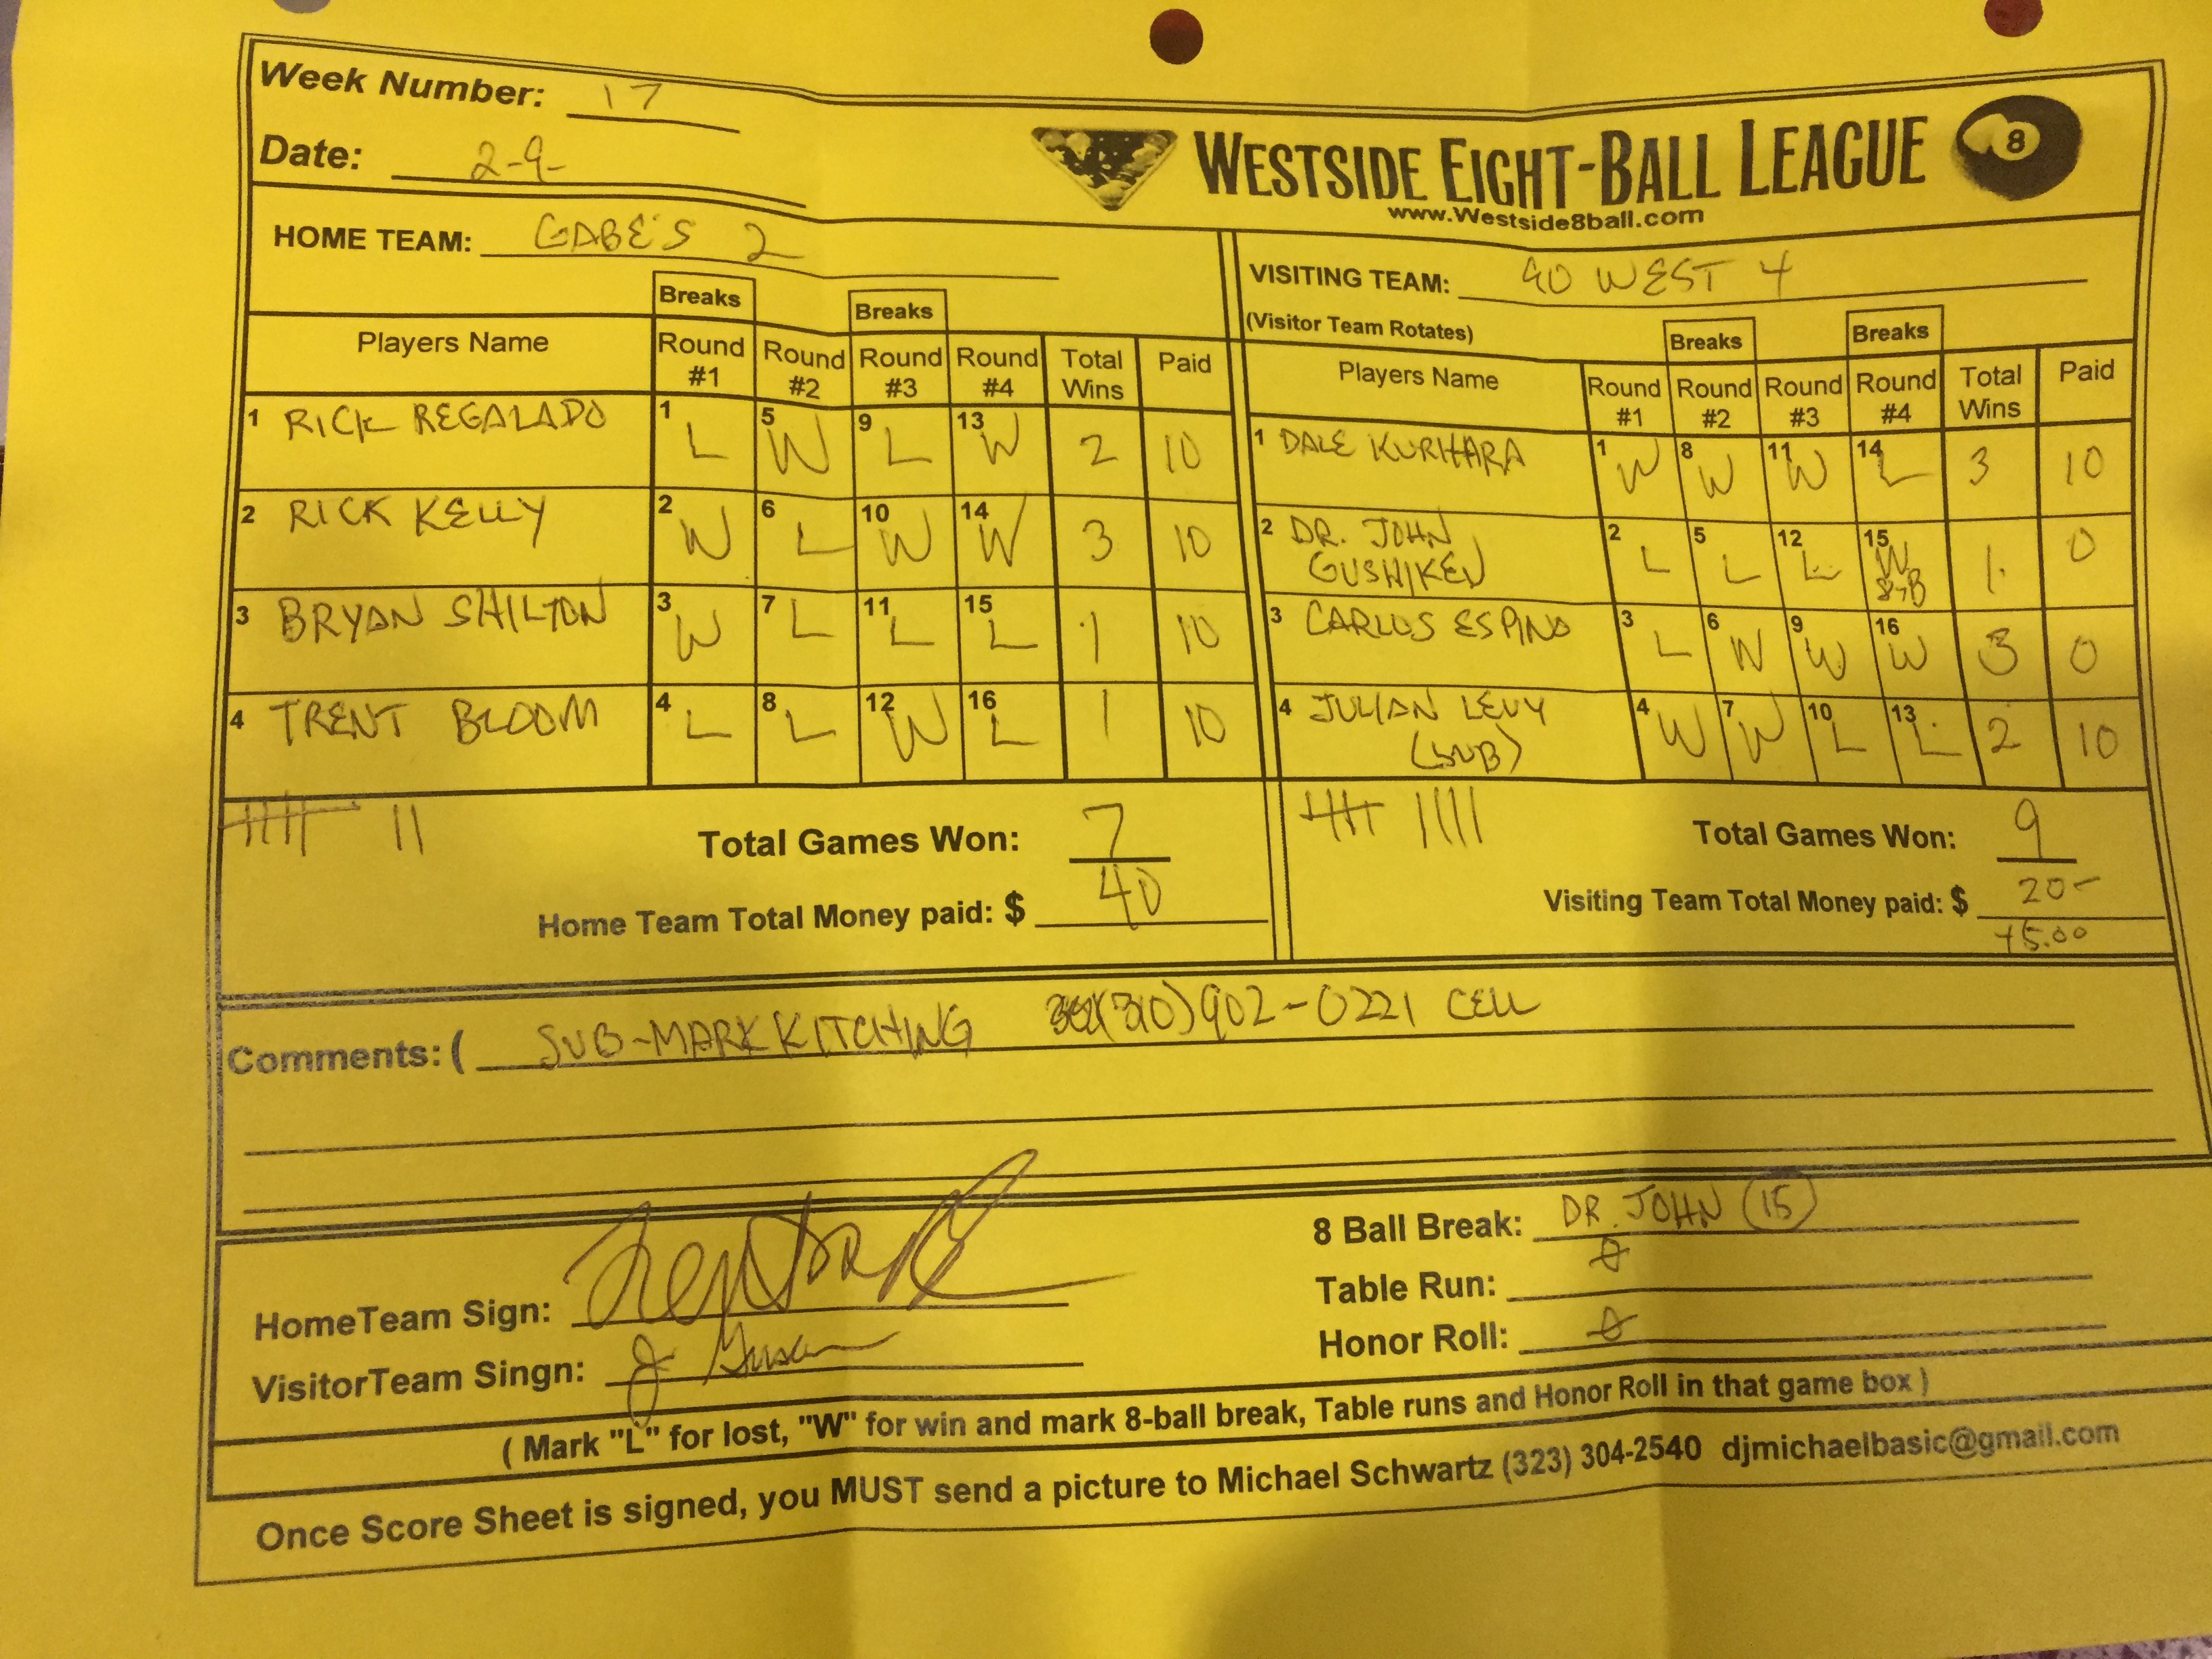 Week Number: 17
Date: 2-9-
WESTSIDE EIGHT-BALL LEAGUE 8
www.Westside8ball.com
HOME TEAM: GABE'S 2
VISITING TEAM: 90 WEST 4
(Visitor Team Rotates)
Breaks Breaks Breaks Breaks
Players Name Round #1 Round #2 Round #3 Round #4 Total Wins Paid Players Name Round #1 Round #2 Round #3 Round #4 Total Wins Paid
1 RICK REGALADO 1 L 5 W 9 L 13 W 2 10 1 DALE KURIHARA 1 W 8 W 11 W 14 L 3 10
2 RICK KELLY 2 W 6 L 10 W 14 W 3 10 2 DR. JOHN GUSHIKEN 2 L 5 L 12 L 15 W 1 0
3 BRYAN SHILTON 3 W 7 L 11 L 15 L 1 10 3 CARLOS ESPINO 3 L 6 W 9 W 16 W 3 0
4 TRENT BLOOM 4 L 8 L 12 W 16 L 1 10 4 JULIAN LEVY (SUB) 4 W 7 W 10 L 13 L 2 10
Total Games Won: 7
Home Team Total Money paid: $ 40
Total Games Won: 9
Visiting Team Total Money paid: $ 20-
+5.00
Comments: ( SUB-MARK KITCHING (310)902-0221 CELL
HomeTeam Sign:
VisitorTeam Singn:
8 Ball Break: DR. JOHN (15)
Table Run:
Honor Roll:
( Mark "L" for lost, "W" for win and mark 8-ball break, Table runs and Honor Roll in that game box )
Once Score Sheet is signed, you MUST send a picture to Michael Schwartz (323) 304-2540 djmichaelbasic@gmail.com